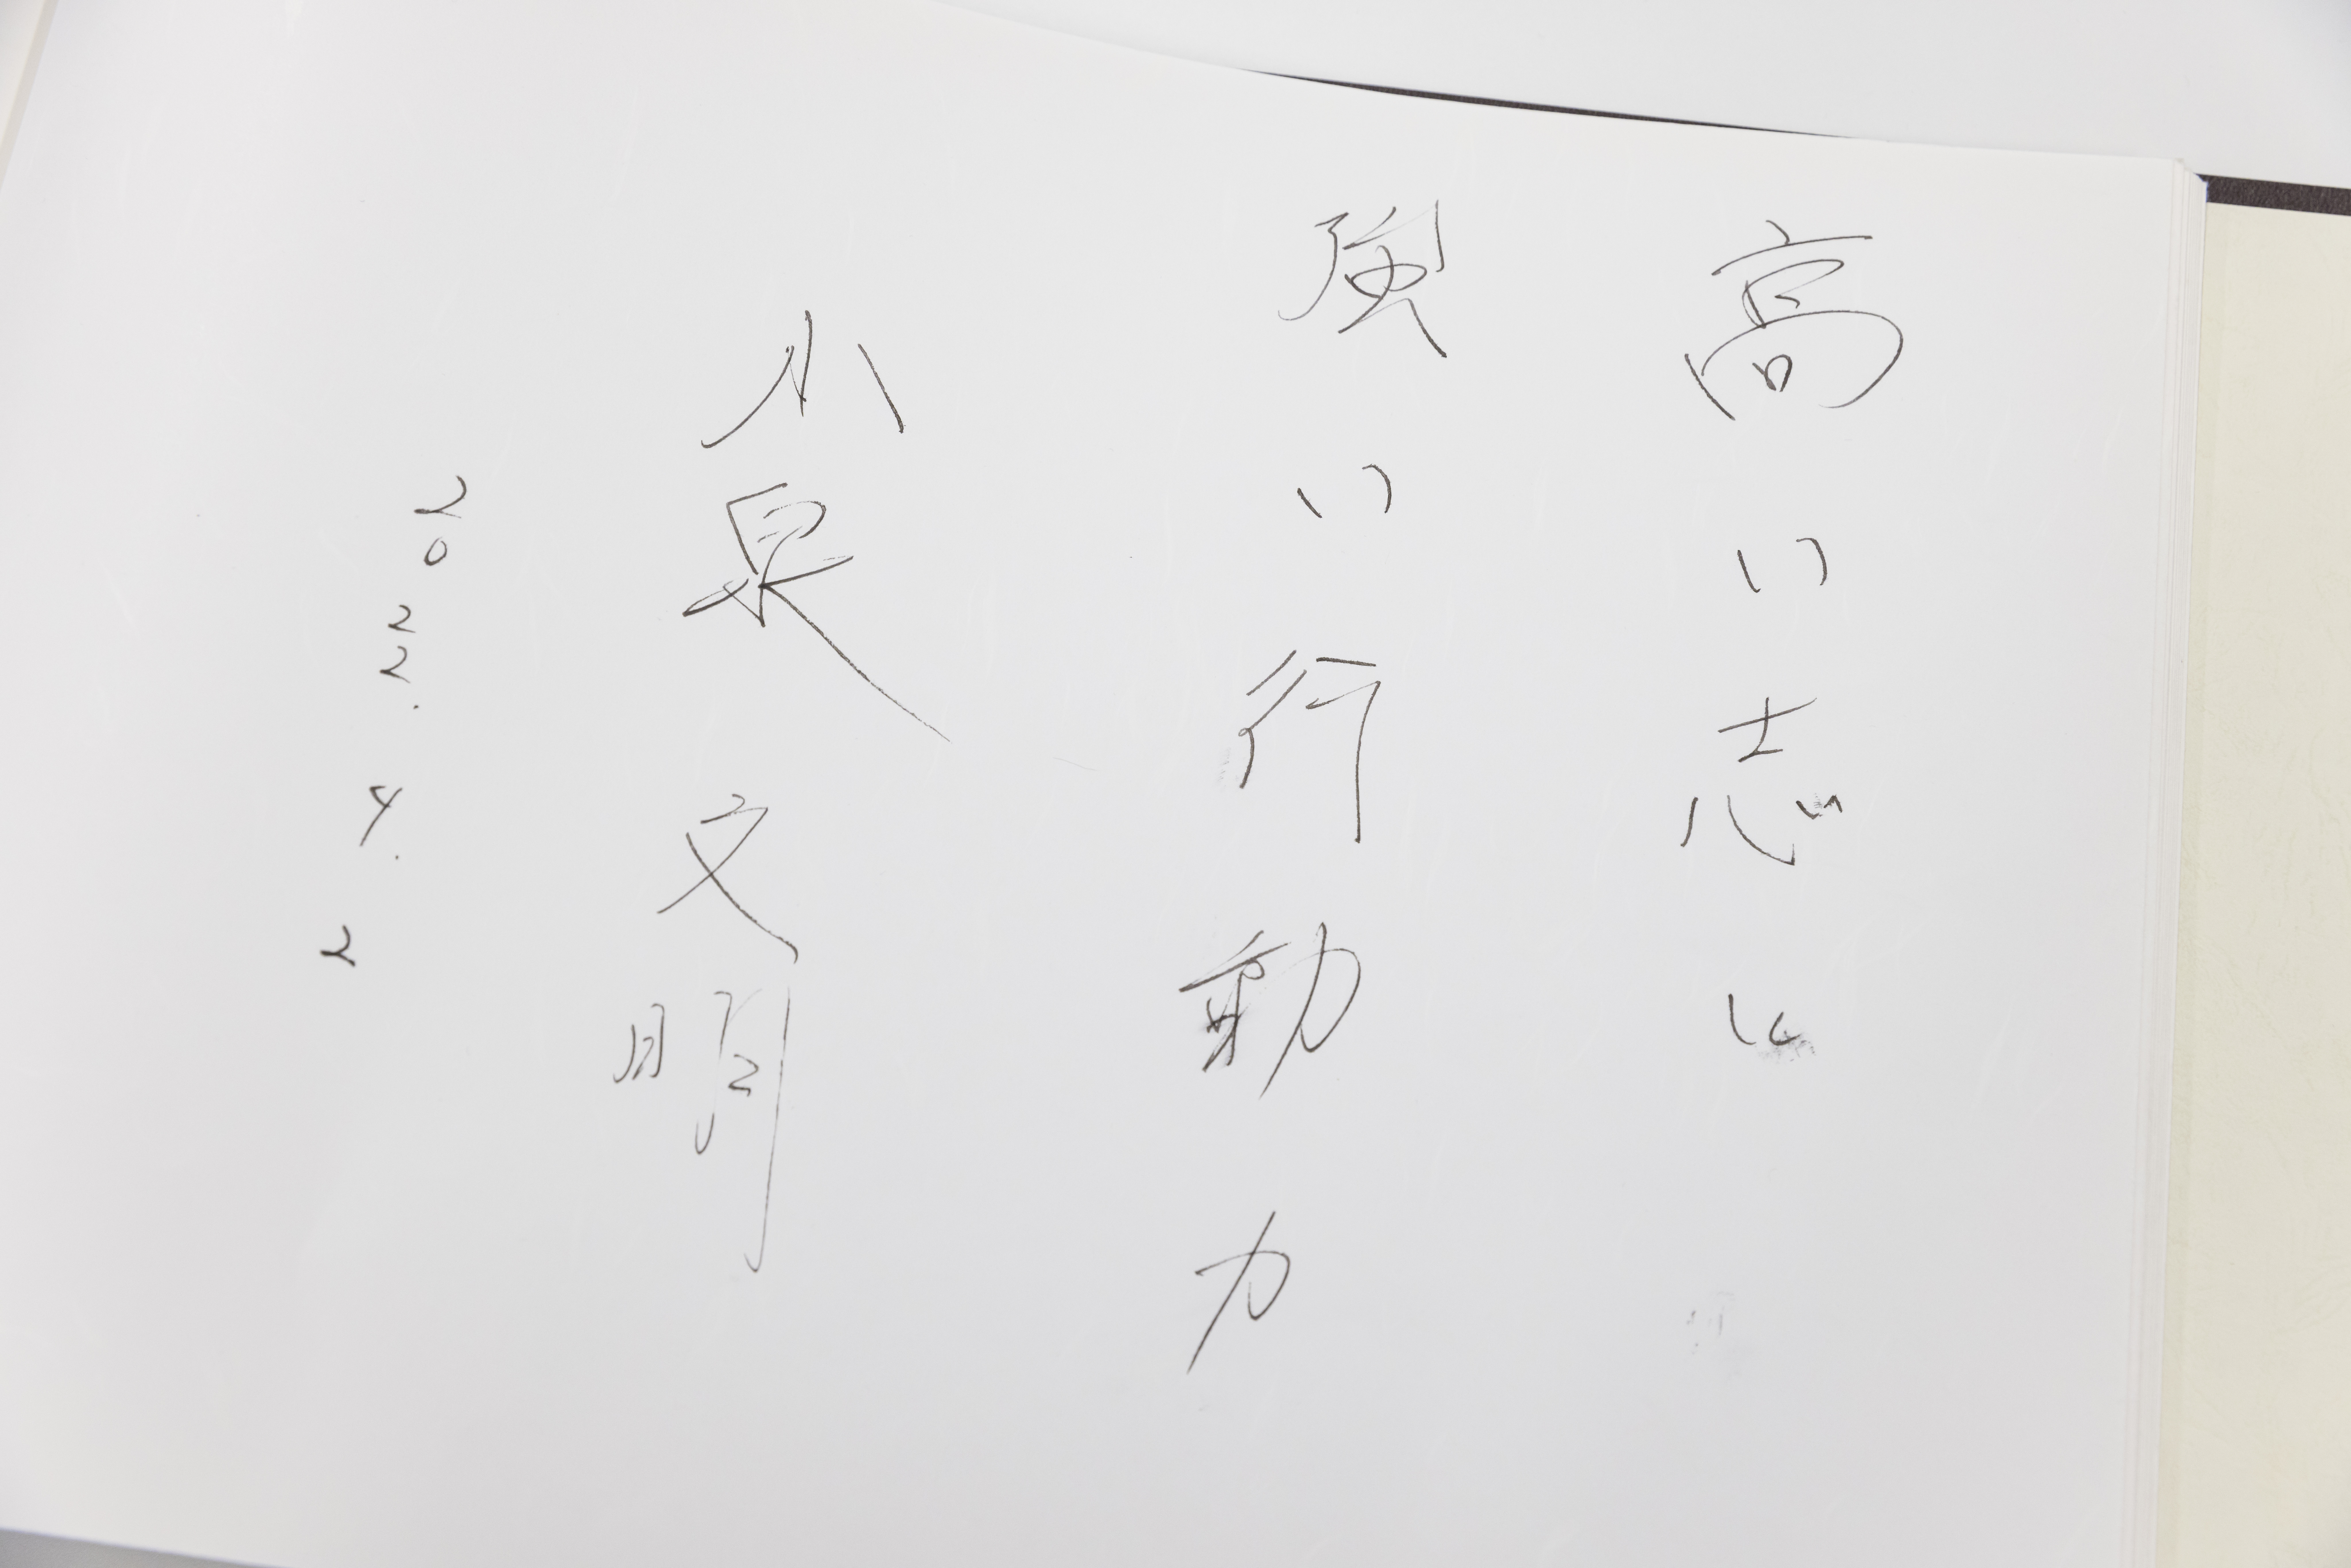 高い志と
強い行動力
小泉文明
2022.4.2